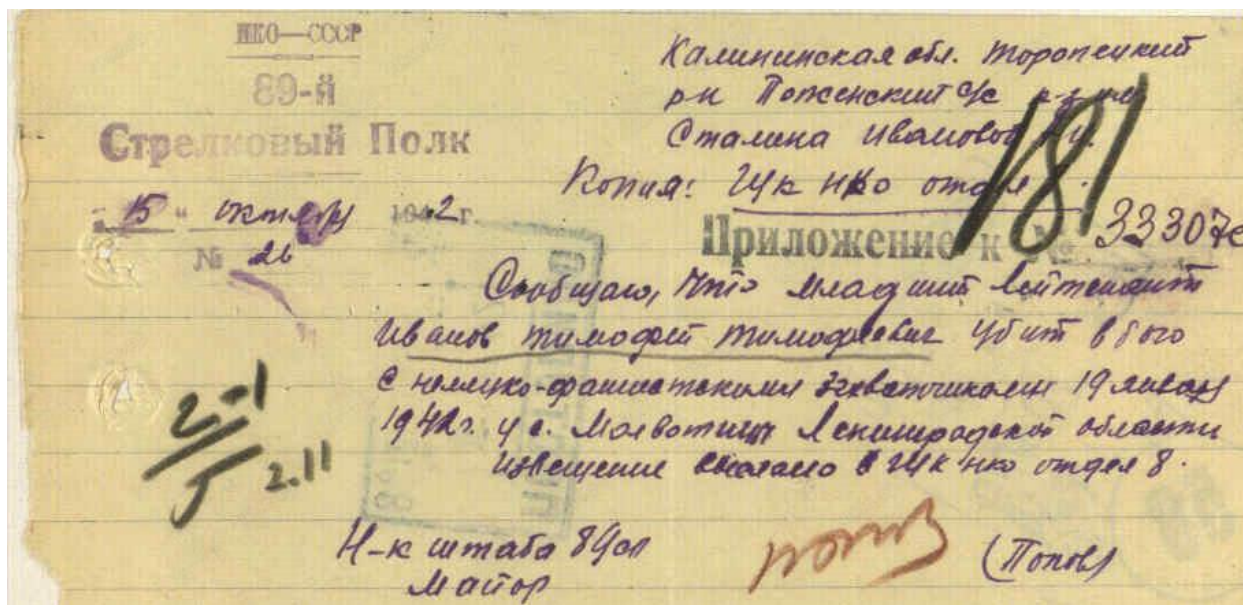 НКО—СССР
89-й
Стрелковый Полк
"15" октября 1942 г.
№ 26
Калининская обл. Торопецкий
р-н Поженский с/с к-з им.
Сталина Ивановой
Копия: ГУК НКО отдел
181
Приложение к № 33307с
Сообщаю, что младший лейтенант
Иванов Тимофей Тимофеевич убит в бою
с немецко-фашистскими захватчиками 19 января
1942г. у с. Молвотицы Ленинградской области
извещение выслано в ГУК НКО отдел 8.
2-1
5
2.11
Н-к штаба 89сп
Майор
(Попов)